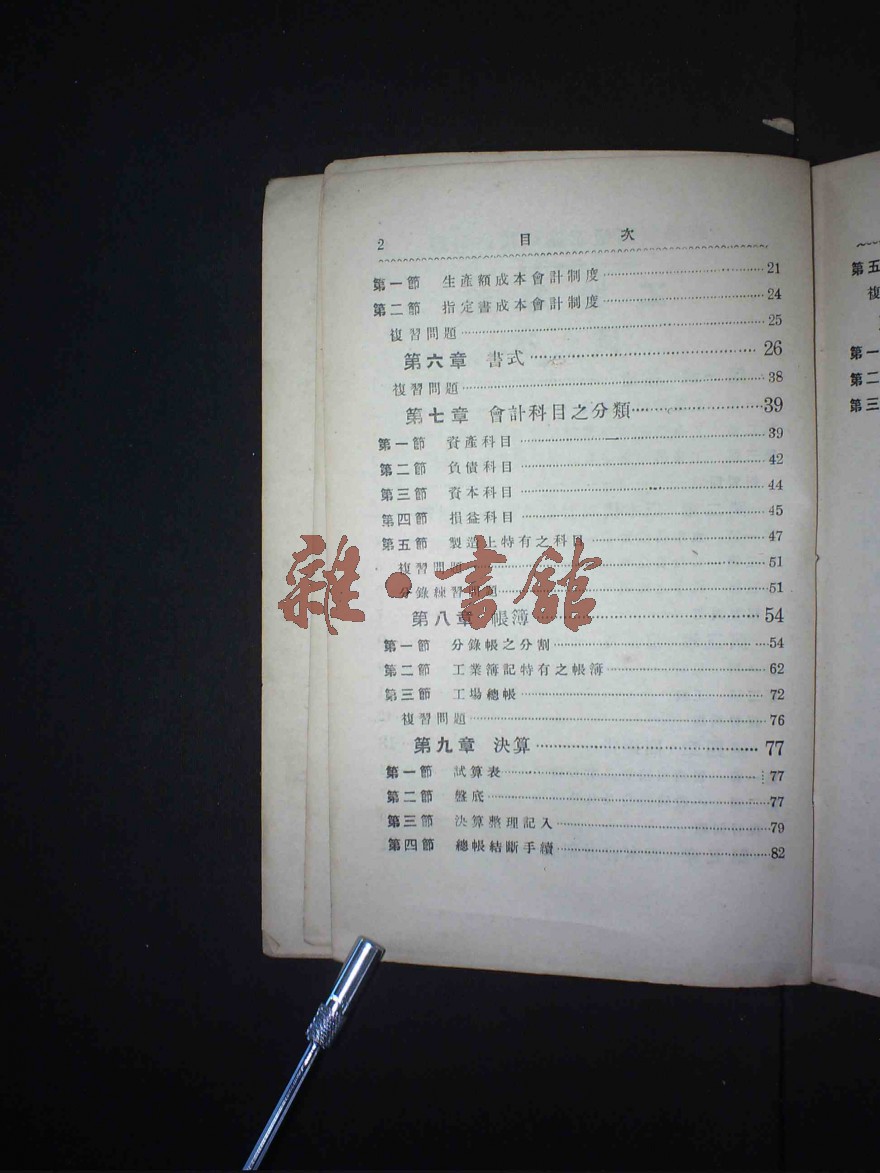 2 目 次
第一節 生產額成本會計制度……21
第二節 指定書成本會計制度……24
複習問題……25
第六章 書式……26
複習問題……38
第七章 會計科目之分類……39
第一節 資產科目……39
第二節 負債科目……42
第三節 資本科目……44
第四節 損益科目……45
第五節 製造上特有之科目……47
複習問題……51
分錄練習問題……51
第八章 帳簿……54
第一節 分錄帳之分割……54
第二節 工業簿記特有之帳簿……62
第三節 工場總帳……72
複習問題……76
第九章 決算……77
第一節 試算表……77
第二節 盤底……77
第三節 決算整理記入……79
第四節 總帳結斷手續……82
雜·書館
第五
複
第一
第二
第三